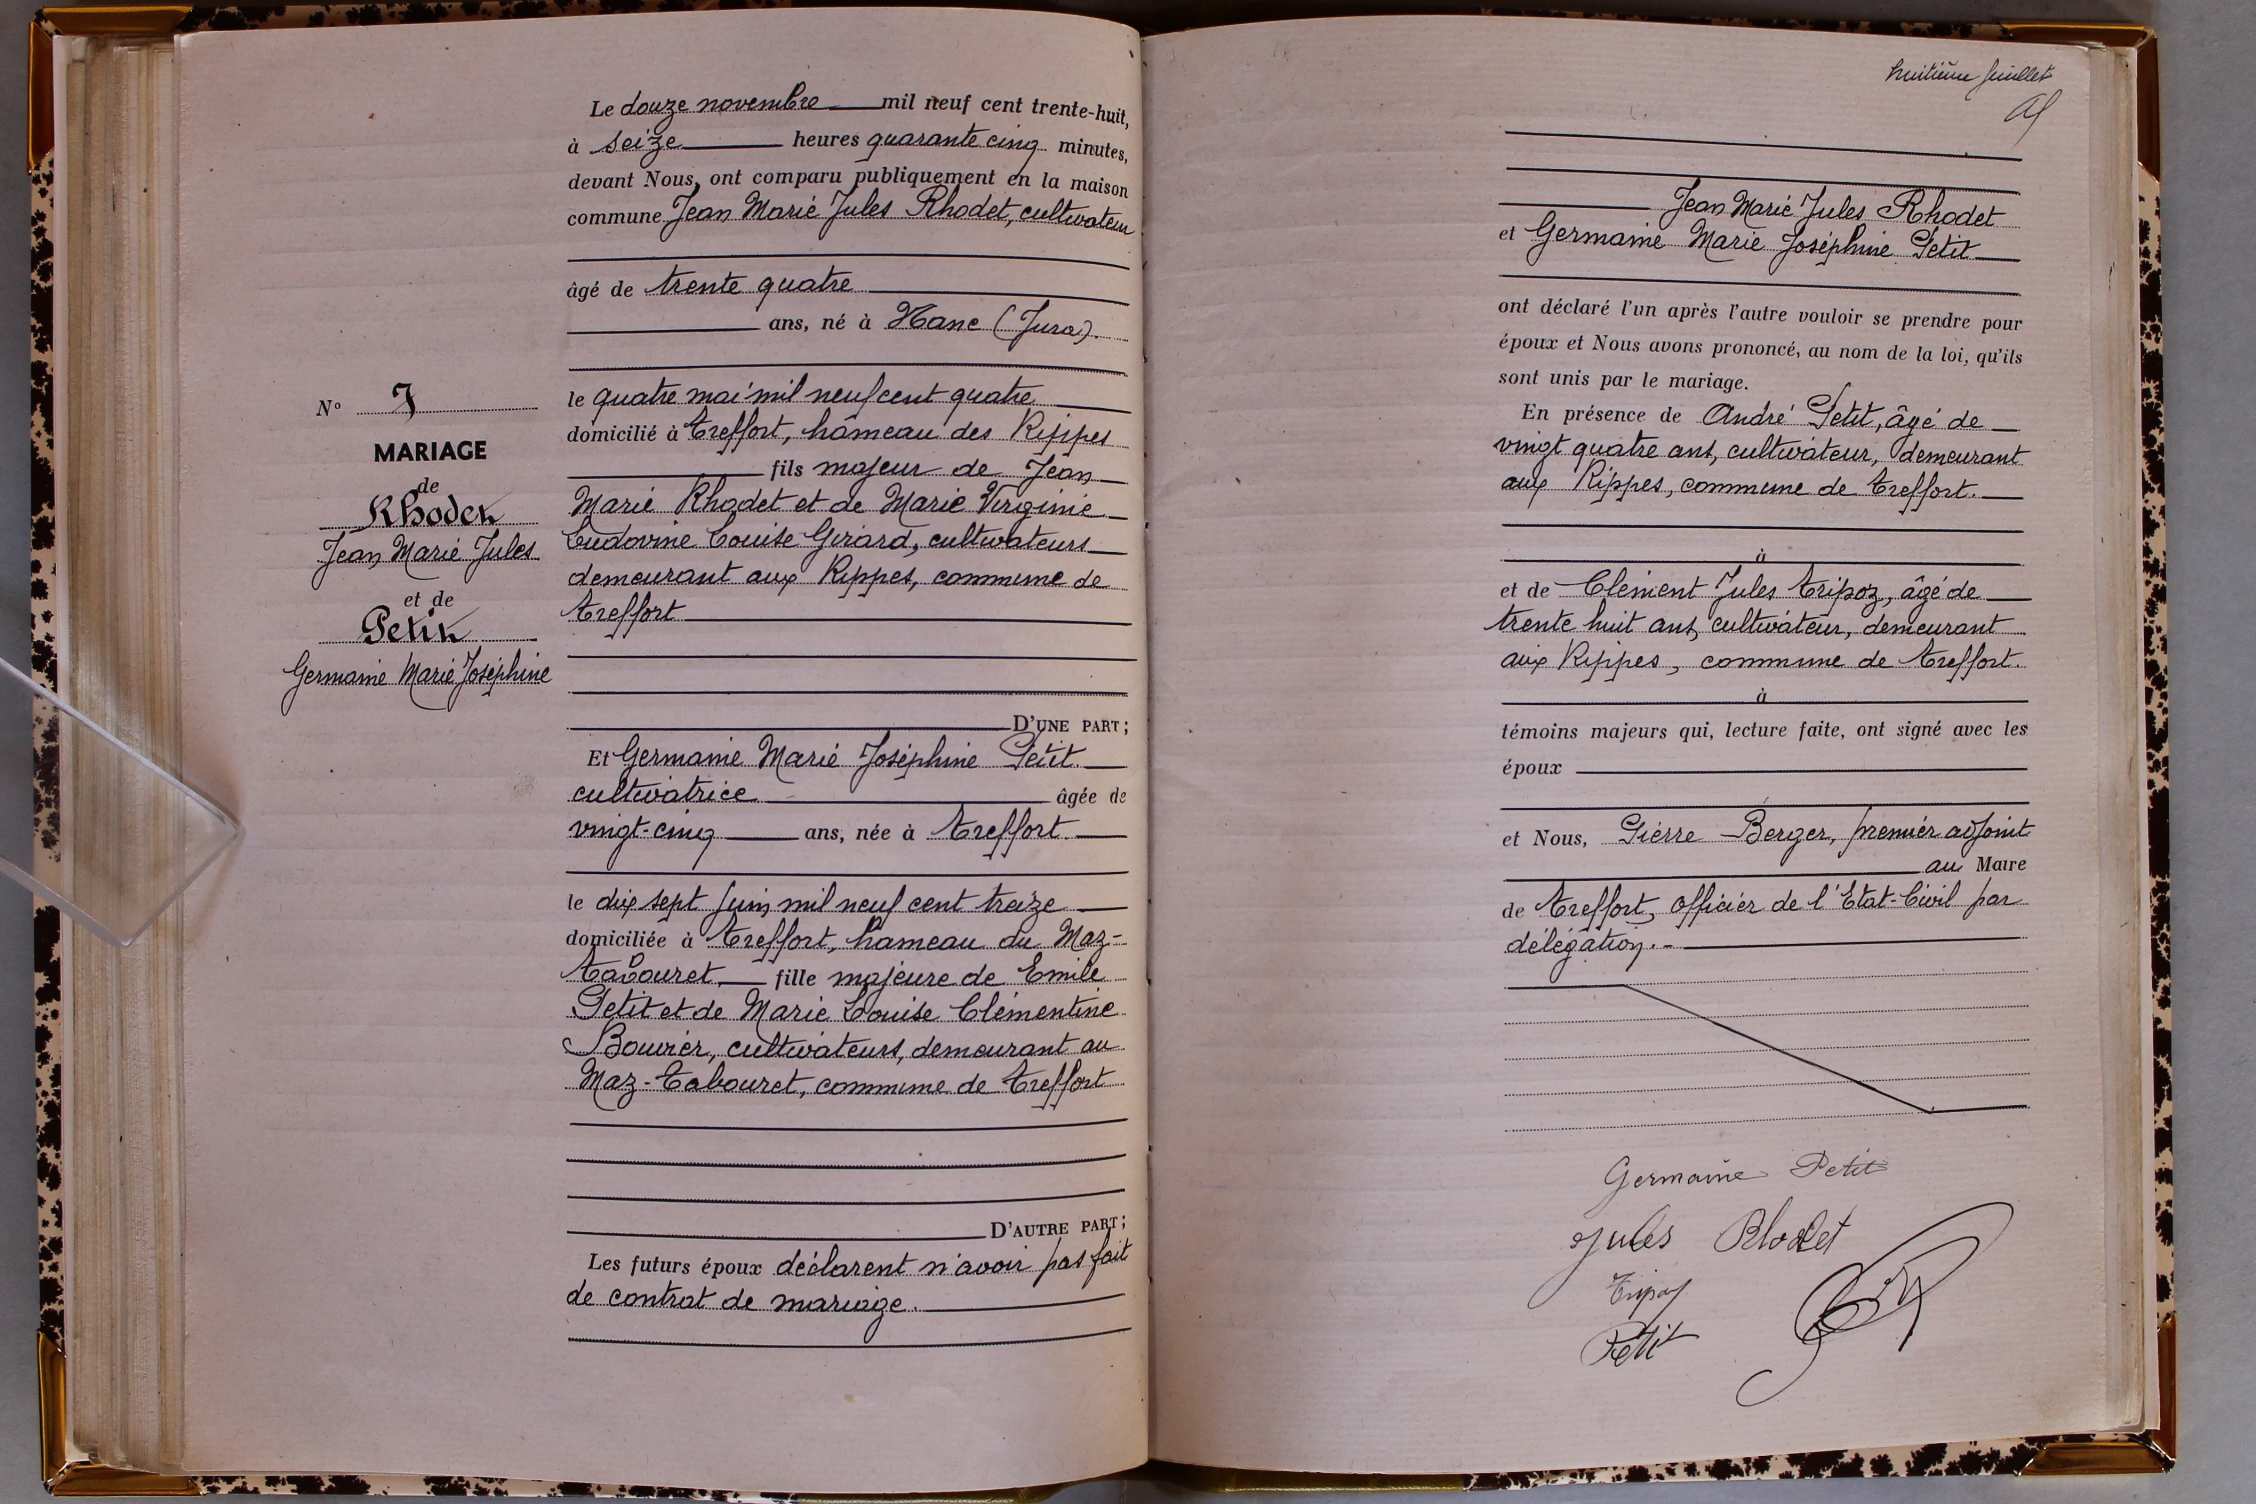 N° 7
MARIAGE
de
Rhodet
Jean Marie Jules
et de
Petit
Germaine Marie Joséphine
Le douze novembre mil neuf cent trente-huit,
à seize heures quarante cinq minutes,
devant Nous, ont comparu publiquement en la maison
commune Jean Marie Jules Rhodet, cultivateur
âgé de trente quatre
ans, né à Nanc (Jura).
le quatre mai mil neuf cent quatre
domicilié à Treffort, hâmeau des Rippes
fils majeur de Jean
Marie Rhodet et de Marie Virginie
Ludovine Louise Girard, cultivateurs
demeurant aux Rippes, commune de
Treffort
D'UNE PART;
Et Germaine Marie Joséphine Petit
cultivatrice âgée de
vingt-cinq ans, née à Treffort
le dix sept juin mil neuf cent treize
domiciliée à Treffort, hameau du Maz-
Tabouret, fille majeure de Emile
Petit et de Marie Louise Clémentine
Bouvier, cultivateurs, demeurant au
Maz-Tabouret, commune de Treffort
D'AUTRE PART;
Les futurs époux déclarent n'avoir pas fait
de contrat de mariage.
huitième feuillet
Jean Marie Jules Rhodet
et Germaine Marie Joséphine Petit
ont déclaré l'un après l'autre vouloir se prendre pour
époux et Nous avons prononcé, au nom de la loi, qu'ils
sont unis par le mariage.
En présence de André Petit, âgé de
vingt quatre ans, cultivateur, demeurant
aux Rippes, commune de Treffort.
à
et de Clément Jules Tripoz, âgé de
trente huit ans, cultivateur, demeurant
aux Rippes, commune de Treffort.
à
témoins majeurs qui, lecture faite, ont signé avec les
époux
et Nous, Pierre Berger, premier adjoint
au Maire
de Treffort, officier de l'Etat-Civil par
délégation.-
Germaine Petit
Jules Rhodet
Tripoz
Petit